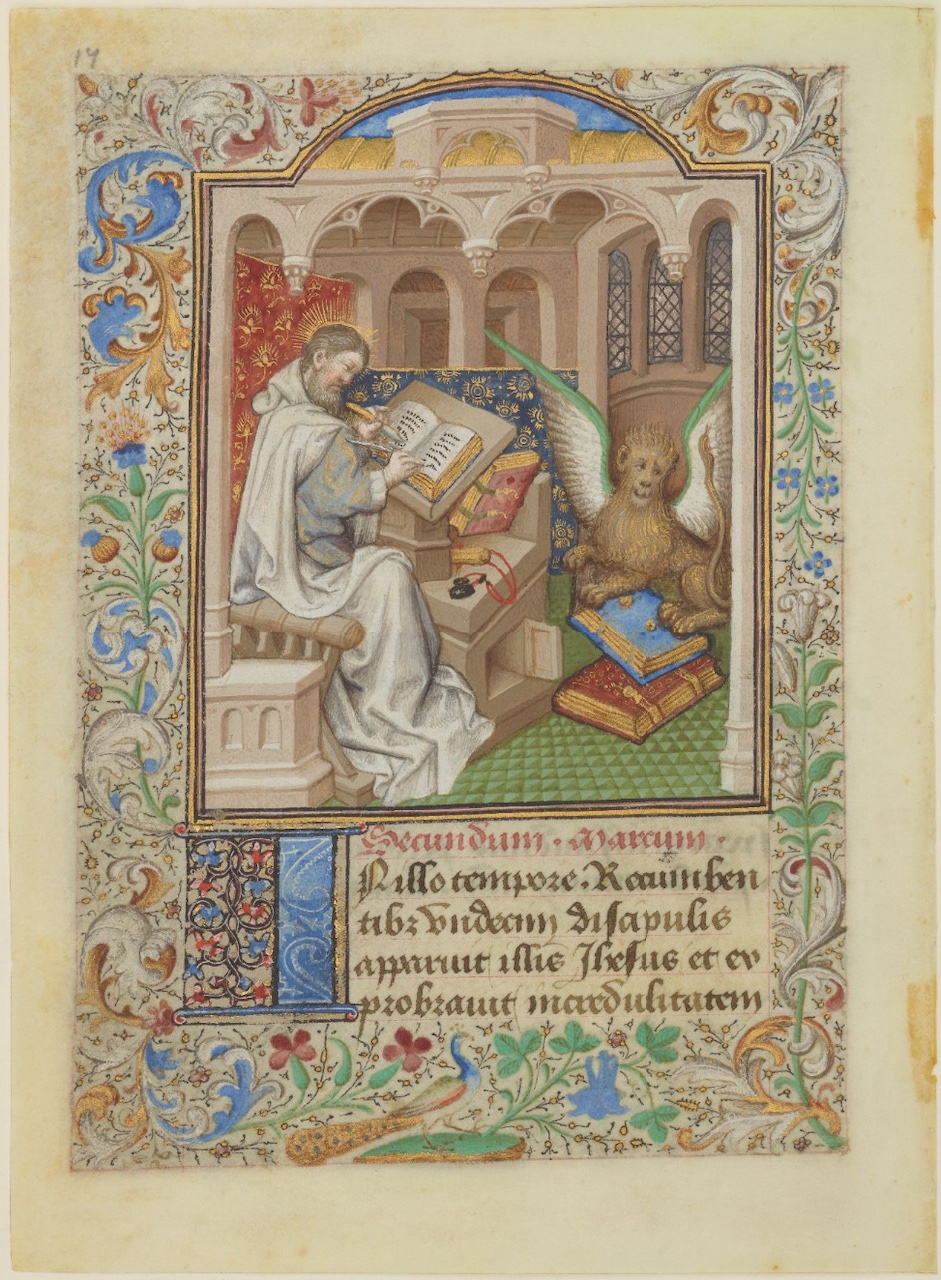 14
Secundum · Marcum ·
IN illo tempore. Recumben
tibz vndecim discipulis
apparuit illis Jhesus et ex
probrauit incredulitatem